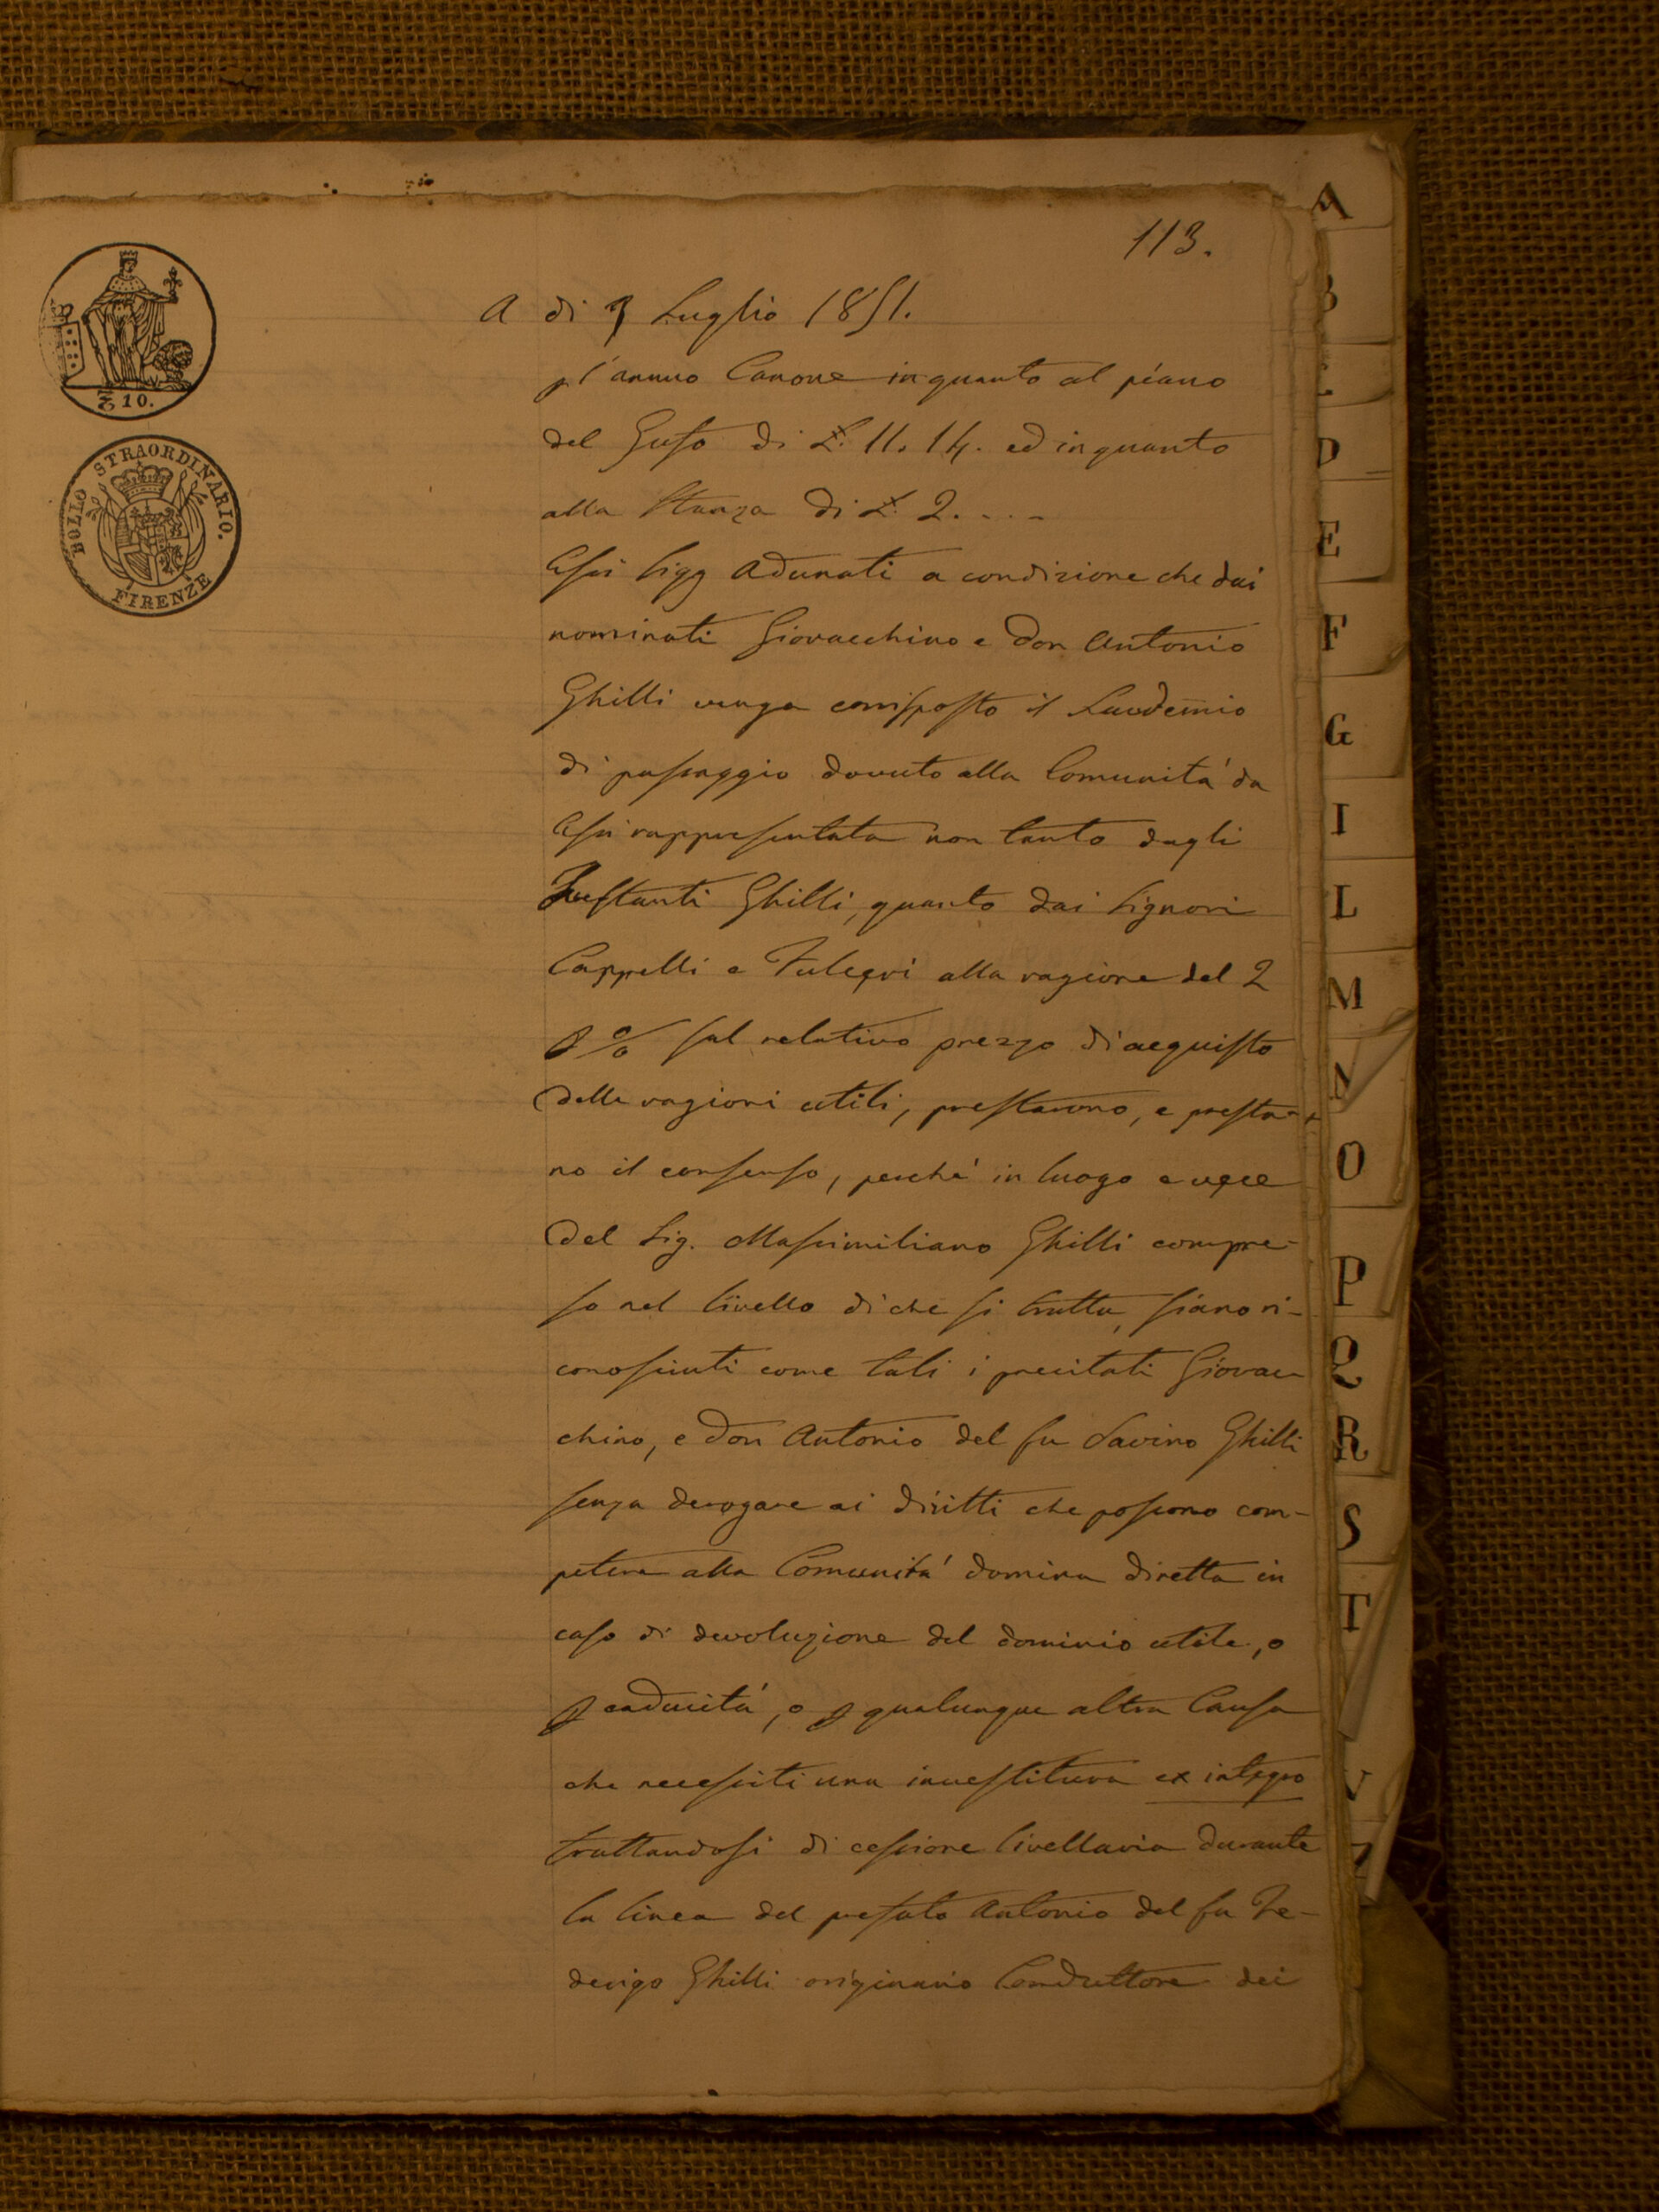 113.
A di 9 Luglio 1851.
p l'annuo Canone inquanto al piano
del Guso di £. 11. 14. ed inquanto
alla Stanza di £ 2. . . -
Essi Sigg Adunati a condizione che dai
nominati Giovacchino e Don Antonio
Ghilli venga corrisposto il Laudemio
di passaggio dovuto alla Comunità da
Essi rappresentata non tanto dagli
Instanti Ghilli, quanto dai Signori
Cappelli e Fulceri alla ragione del 2
p % sul relativo prezzo di acquisto
delle ragioni utili, prestarono, e presta-
no il consenso, perchè in luogo e vece
del Sig. Massimiliano Ghilli compre-
so nel livello di che si tratta, siano ri-
conosciuti come tali i precitati Giovac
chino, e Don Antonio del fu Savino Ghilli
senza derogare ai diritti che possono com-
petere alla Comunità domina diretta in
caso di devoluzione del dominio utile, o
p caducità, o p qualunque altra Causa
che necessiti una investitura ex integro
trattandosi di cessione livellaria durante
la linea del prefato Antonio del fu Fe-
derigo Ghilli originario Conduttore dei
10.
BOLLO STRAORDINARIO.
FIRENZE
A
B
C
D
E
F
G
I
L
M
N
O
P
Q
R
S
T
V
Z